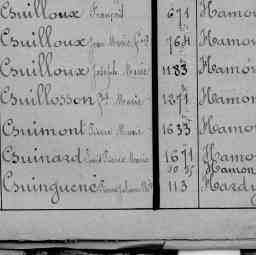 Cuilloux François 671 Hamon
Cuilloux Jean Marie 764 Hamon
Cuilloux Joseph Marie 1183 Hamon
Cuillosson Marie 1271 Hamon
Cuimont Pierre Marie 1633 Hamon
Cuinard Louis Pierre Marie 1671 Hamon
Hamon
Cuinguené 113 Hardy